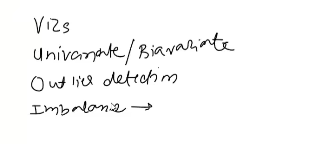 Vizs
Univariate/Biavariate
Outlier detection
Imbalance →